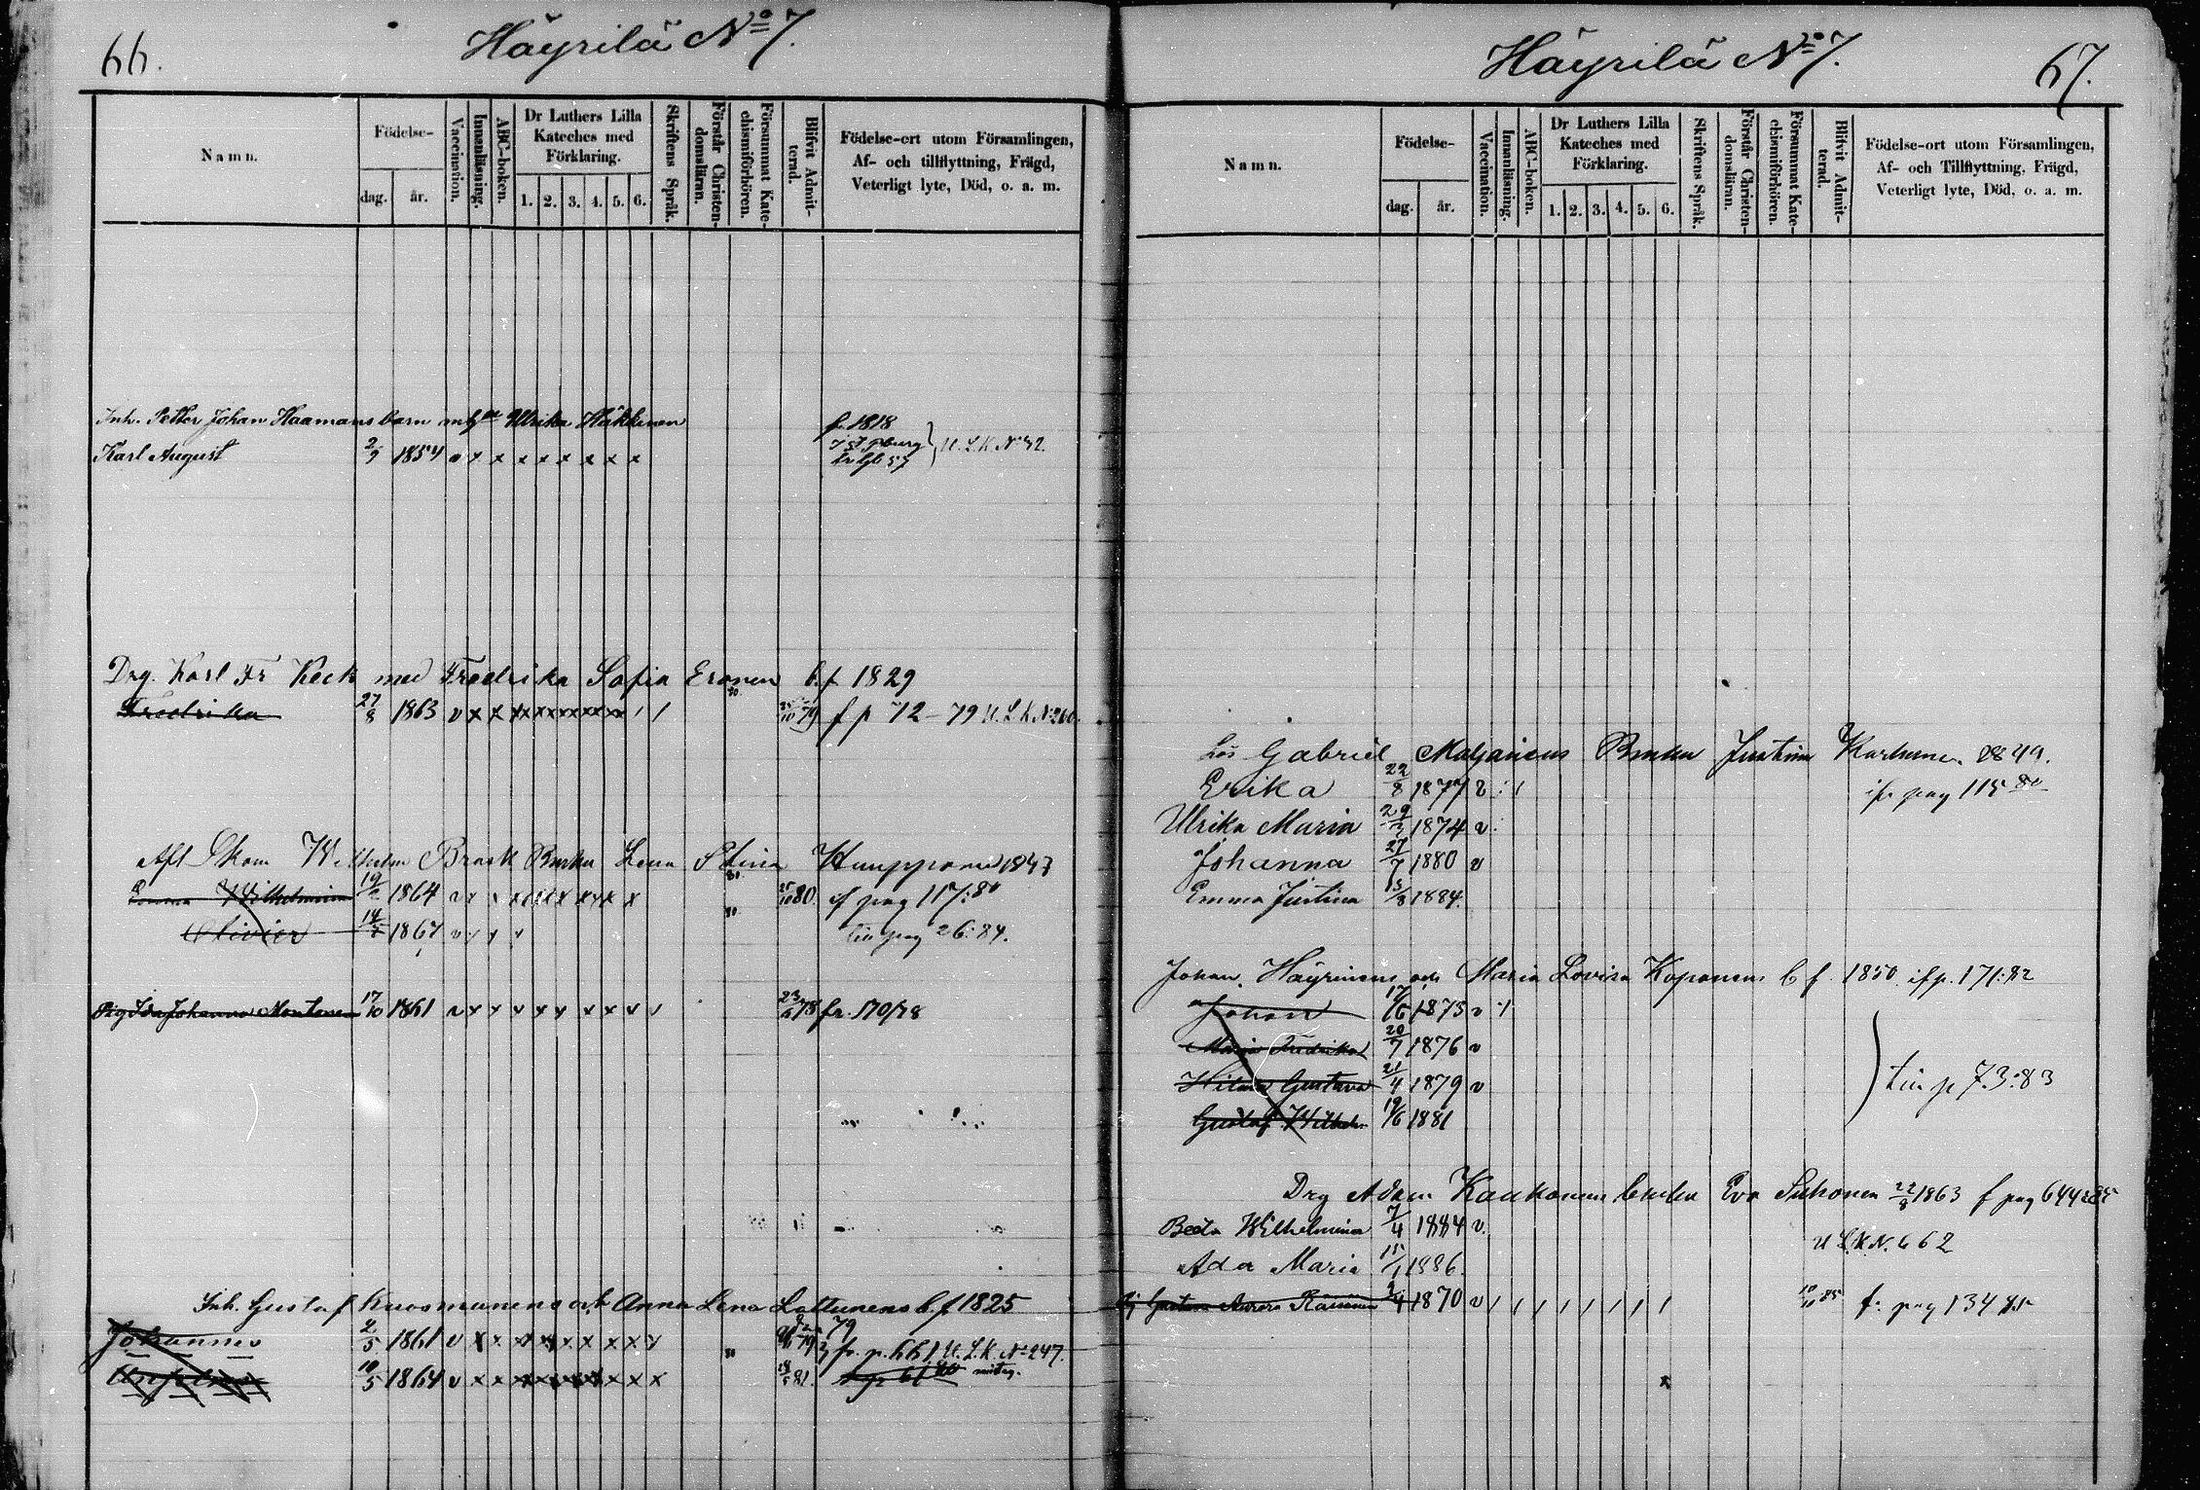 66.
Häyrilä No 7.
Namn.
Födelse-
dag.
år.
Vaccination.
Innanläsning.
ABC-boken.
Dr Luthers Lilla
Kateches med
Förklaring.
1. 2. 3. 4. 5. 6.
Skriftens Språk.
Förstår Christen-
domsläran.
Försummat Kate-
chismiförhören.
Blifvit Admit-
terad.
Födelse-ort utom Församlingen,
Af- och tillflyttning, Frägd,
Veterligt lyte, Död, o. a. m.
Inh. Petter Johan Haamans barn Ulrika Häkkinen f. 1818
Karl August 2/9 1854 v x x x x x x x x U. L. K. No 42.
Drg. Karl Fr Keck med Fredrika Sofia Eronen b. f 1829
Fredrika 27/8 1863 v x x 25/10 79 f p 72-79 U. L. K. No 260.
Wilhelm Brask Lena Stina Kauppanen 1847
Emma Wilhelmina 19/2 1864 25/10 80 if pag 117:80
Olivier 14/ 1867 till pag 26:84.
Pig Ida Johanna Montonen 17/10 1861 23/ 78 fr. 170/78
Inh. Gustaf Kuosmanens och Anna Lena Lattunens b. f 1825
Johannes 2/5 1861 v x x x x x x x x 79 fr. p. 661 U. L. K. No 247.
10/5 1864 v x x x x x x x x x 81.
Häyrilä No 7.
67.
Namn.
Födelse-
dag.
år.
Vaccination.
Innanläsning.
ABC-boken.
Dr Luthers Lilla
Kateches med
Förklaring.
1. 2. 3. 4. 5. 6.
Skriftens Språk.
Förstår Christen-
domsläran.
Försummat Kate-
chismiförhören.
Blifvit Admit-
terad.
Födelse-ort utom Församlingen,
Af- och Tillflyttning, Frägd,
Veterligt lyte, Död, o. a. m.
Gabriel Justina 1849.
Erika 22/8 1877 v if. pag 115 80
Ulrika Maria 1874 v
Johanna 27/7 1880 v
Emma Justina 13/8 1884.
Johan Häyrinens och Maria Lovisa Koponens b f 1850. if p. 171:82
Johan 17/6 1873 v
Maria Fredrika 20/7 1876 v
Hilma Gustava 21/4 1879 v till p 73:83
Gustaf Wilhelm 19/6 1881
Drg Adam Kaukonen Eva Suhonen 22/8 1863 f pag 644
Beata Wilhelmina 7/4 1884 v.
U L. K N. 662
Ada Maria 15/1 1886.
Gustava Aurora Räsänen 1870 v 10/10 85 fr pag 134